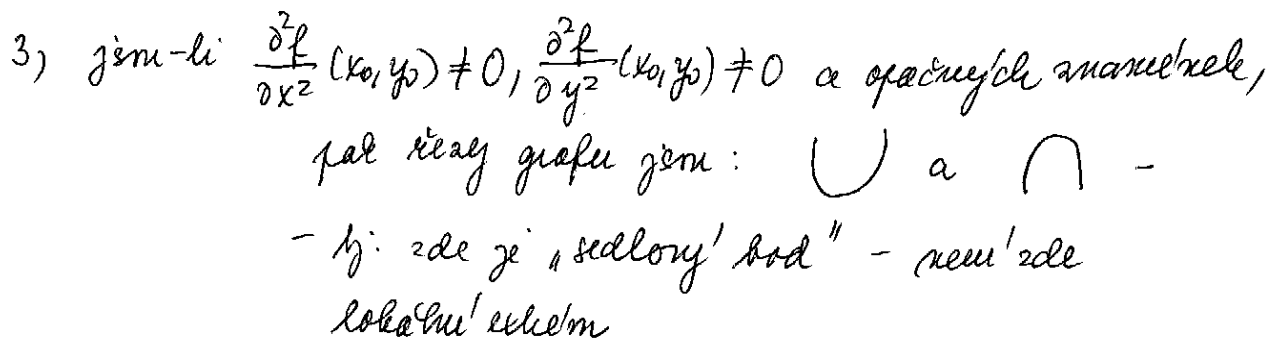 3) jsou-li ∂²f/∂x² (x₀,y₀) ≠ 0, ∂²f/∂y² (x₀,y₀) ≠ 0 a opačných znamének,
pak řezy grafu jsou: ∪ a ∩ -
- tj. zde je „sedlový bod" - není zde
lokální extrém